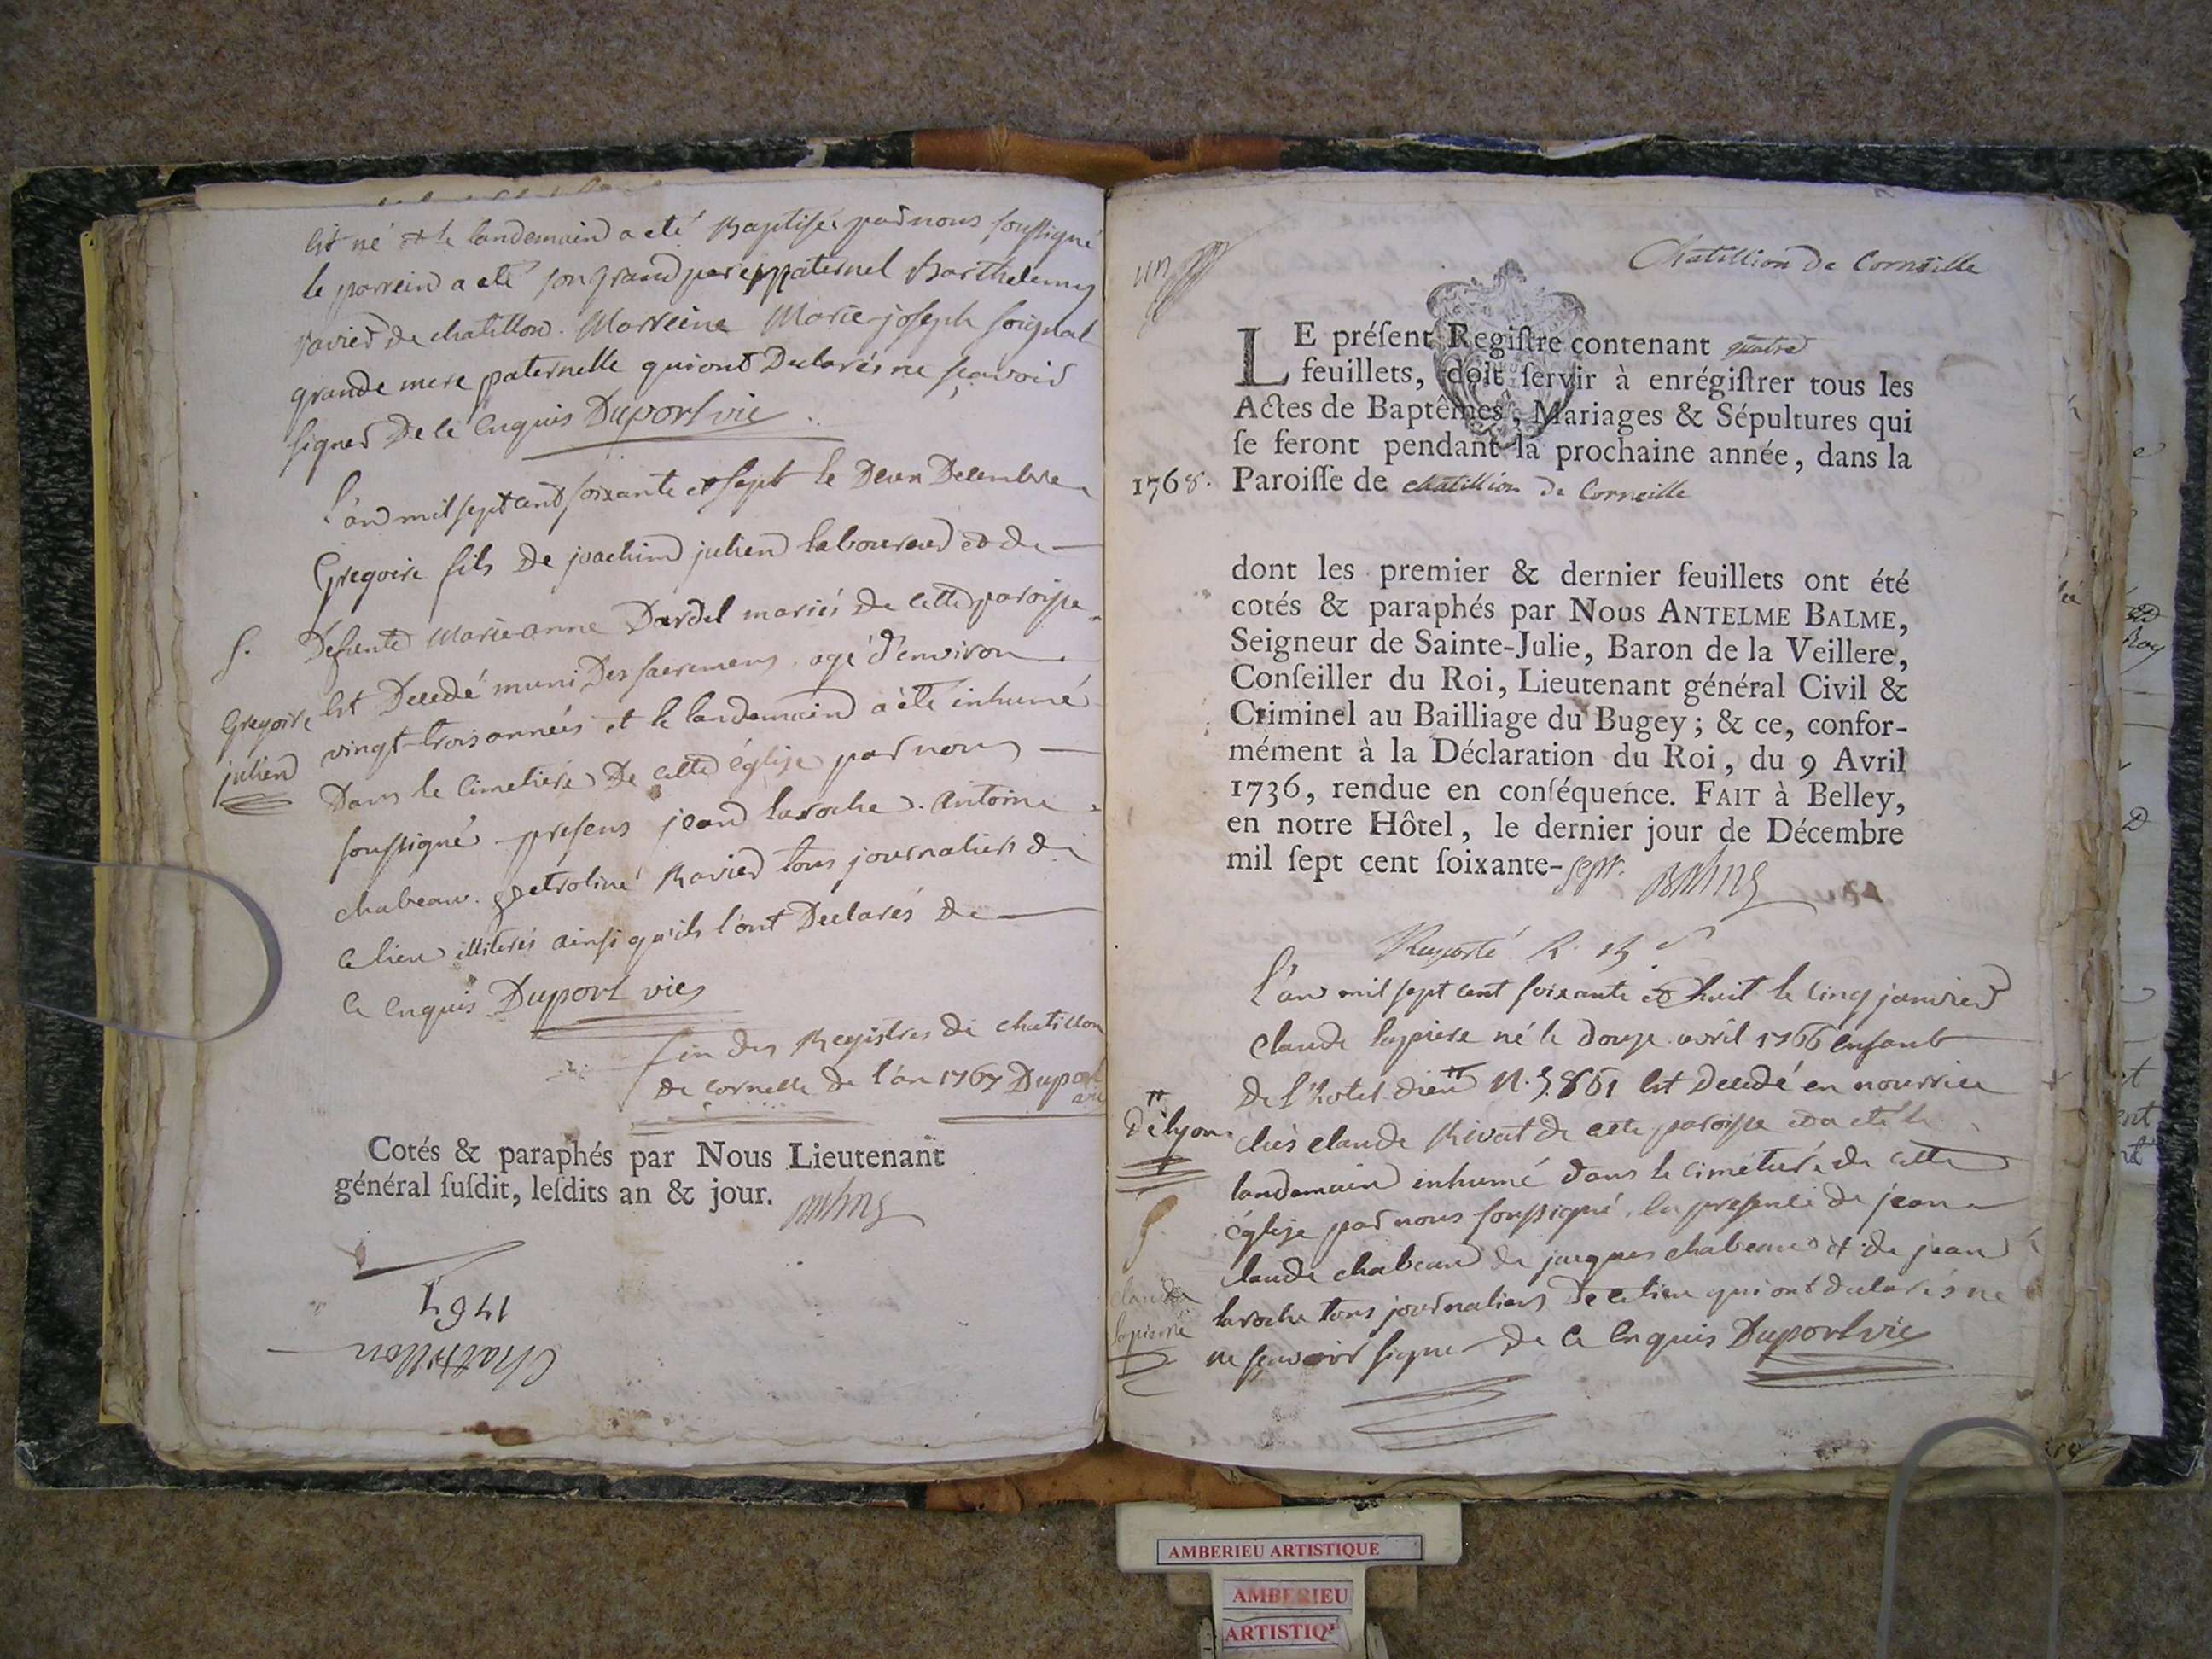 est né et le landemain a eté Baptisé par nous soussigné
le parrein a eté son grand pere paternel Barthelemy
ravier de chatillon. Marreine Marie-joseph soignal
grande mere paternelle qui ont Declarés ne sçavoir
signer De ce Enquis Duport vic
l'an mil sept cent soixante et sept le Deux Decembre
Gregoire fils De joachim julien laboureur et de
S. Defunte Marie-anne Dardel mariés De cette paroisse
Gregoire est Decedé muni Des sacremens, agé d'environ
julien vingt-trois années et le landemain a été inhumé
Dans le Cimetiere De cette église par nous
soussigné presens jean laroche. Antoine
chabeau. petroline Ravier tous journaliers de
ce lieu illiterés ainsi qu'ils l'ont Declarés de
ce enquis Duport vic
fin des Registres de chatillon
de cornelle de l'an 1767 Duport
Cotés & paraphés par Nous Lieutenant
général ſuſdit, leſdits an & jour.
1767
Chattillon
un
Chatillion de Corneille
LE préſent Regiſtre contenant quatre
feuillets, doit ſervir à enrégiſtrer tous les
Actes de Baptêmes, Mariages & Sépultures qui
ſe feront pendant la prochaine année, dans la
1768. Paroiſſe de chatillion de Corneille
dont les premier & dernier feuillets ont été
cotés & paraphés par Nous ANTELME BALME,
Seigneur de Sainte-Julie, Baron de la Veillere,
Conſeiller du Roi, Lieutenant général Civil &
Criminel au Bailliage du Bugey; & ce, confor-
mément à la Déclaration du Roi, du 9 Avril
1736, rendue en conſéquence. FAIT à Belley,
en notre Hôtel, le dernier jour de Décembre
mil ſept cent ſoixante-sept. Balme
l'an mil sept cent soixante et huit le cinq janvier
claude lapiere né le douze avril 1766 enfant
de l'hotel dieu # N. 3.861 est decedé en nourrice
# de lyon. chès claude Rivat de cette paroisse et a eté le
landemain inhumé dans le cimétiere de cette
S église par nous soussigné, en presence de jean
claude chabeau de jacques chabeau et de jean
claude lapierre laroche tous journaliers De ce lieu qui ont declarés ne
ne sçavoir signer de ce Enquis Duport vic
AMBERIEU ARTISTIQUE
AMBERIEU
ARTISTIQ